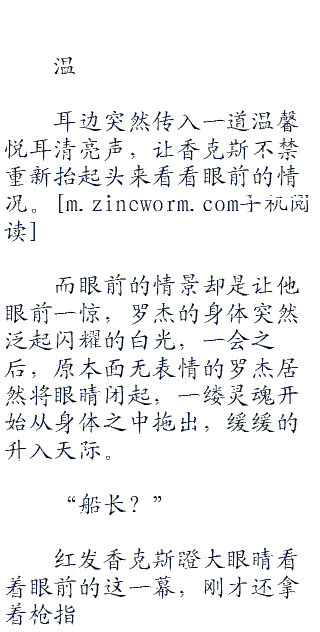 温
耳边突然传入一道温馨
悦耳清亮声，让香克斯不禁
重新抬起头来看看眼前的情
况。[m.zincworm.com手机阅
读]
而眼前的情景却是让他
眼前一惊，罗杰的身体突然
泛起闪耀的白光，一会之
后，原本面无表情的罗杰居
然将眼睛闭起，一缕灵魂开
始从身体之中拖出，缓缓的
升入天际。
“船长？”
红发香克斯瞪大眼睛看
着眼前的这一幕，刚才还拿
着枪指